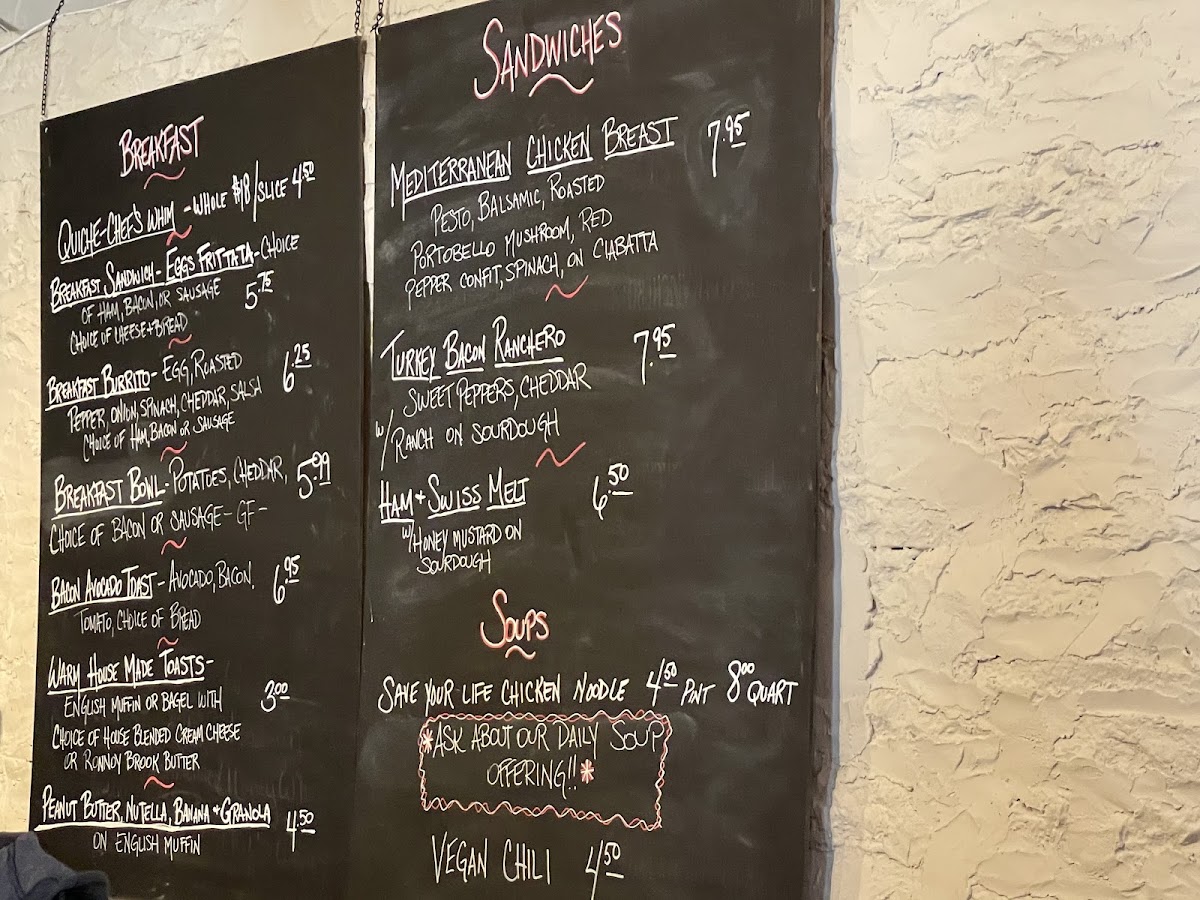 BREAKFAST
QUICHE-CHEF'S WHIM - WHOLE $18/SLICE 4.50
BREAKFAST SANDWICH - EGGS FRITTATA - CHOICE
OF HAM, BACON, OR SAUSAGE 5.75
CHOICE OF CHEESE + BREAD
BREAKFAST BURRITO - EGG, ROASTED 6.25
PEPPER, ONION, SPINACH, CHEDDAR, SALSA
CHOICE OF HAM, BACON OR SAUSAGE
BREAKFAST BOWL - POTATOES, CHEDDAR, 5.99
CHOICE OF BACON OR SAUSAGE - GF -
BACON AVOCADO TOAST - AVOCADO, BACON. 6.95
TOMATO, CHOICE OF BREAD
WARM HOUSE MADE TOASTS -
ENGLISH MUFFIN OR BAGEL WITH 3.00
CHOICE OF HOUSE BLENDED CREAM CHEESE
OR RONNOY BROOK BUTTER
PEANUT BUTTER, NUTELLA, BANANA + GRANOLA 4.50
ON ENGLISH MUFFIN
SANDWICHES
MEDITERRANEAN CHICKEN BREAST 7.95
PESTO, BALSAMIC, ROASTED
PORTOBELLO MUSHROOM, RED
PEPPER CONFIT, SPINACH, ON CIABATTA
TURKEY BACON RANCHERO 7.95
w/ SWEET PEPPERS, CHEDDAR
RANCH ON SOURDOUGH
HAM + SWISS MELT 6.50
w/HONEY MUSTARD ON
SOURDOUGH
SOUPS
SAVE YOUR LIFE CHICKEN NOODLE 4.50 PINT 8.00 QUART
*ASK ABOUT OUR DAILY SOUP
OFFERING!!*
VEGAN CHILI 4.50